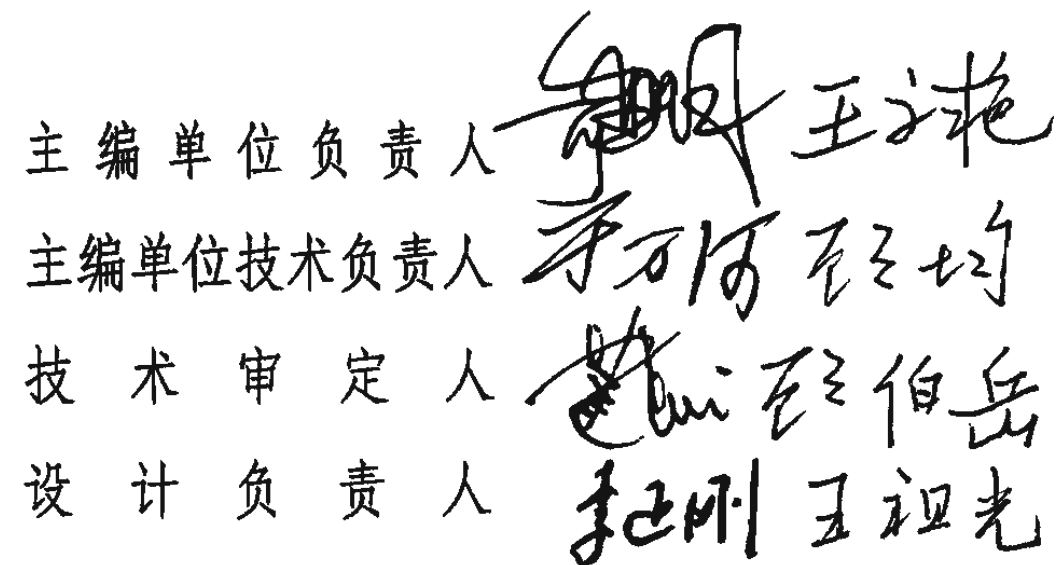 主编单位负责人 王
主编单位技术负责人 于万河 彭均
技术审定人 彭伯岳
设计负责人 李正刚 王祖光